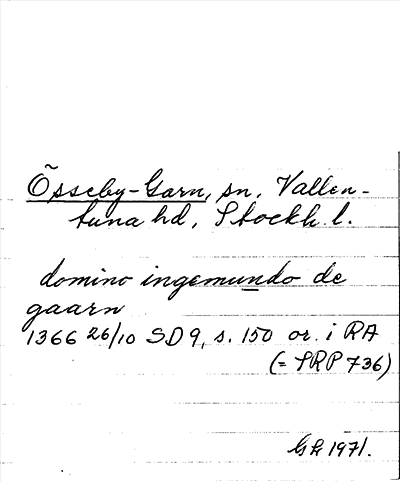 Össeby-Garn, sn, Vallen-
tuna hd, Stockh. l.
domino ingemundo de
gaarn
1366 26/10 SD 9, s. 150 or. i RA
(= SRP 736)
GH 1971.